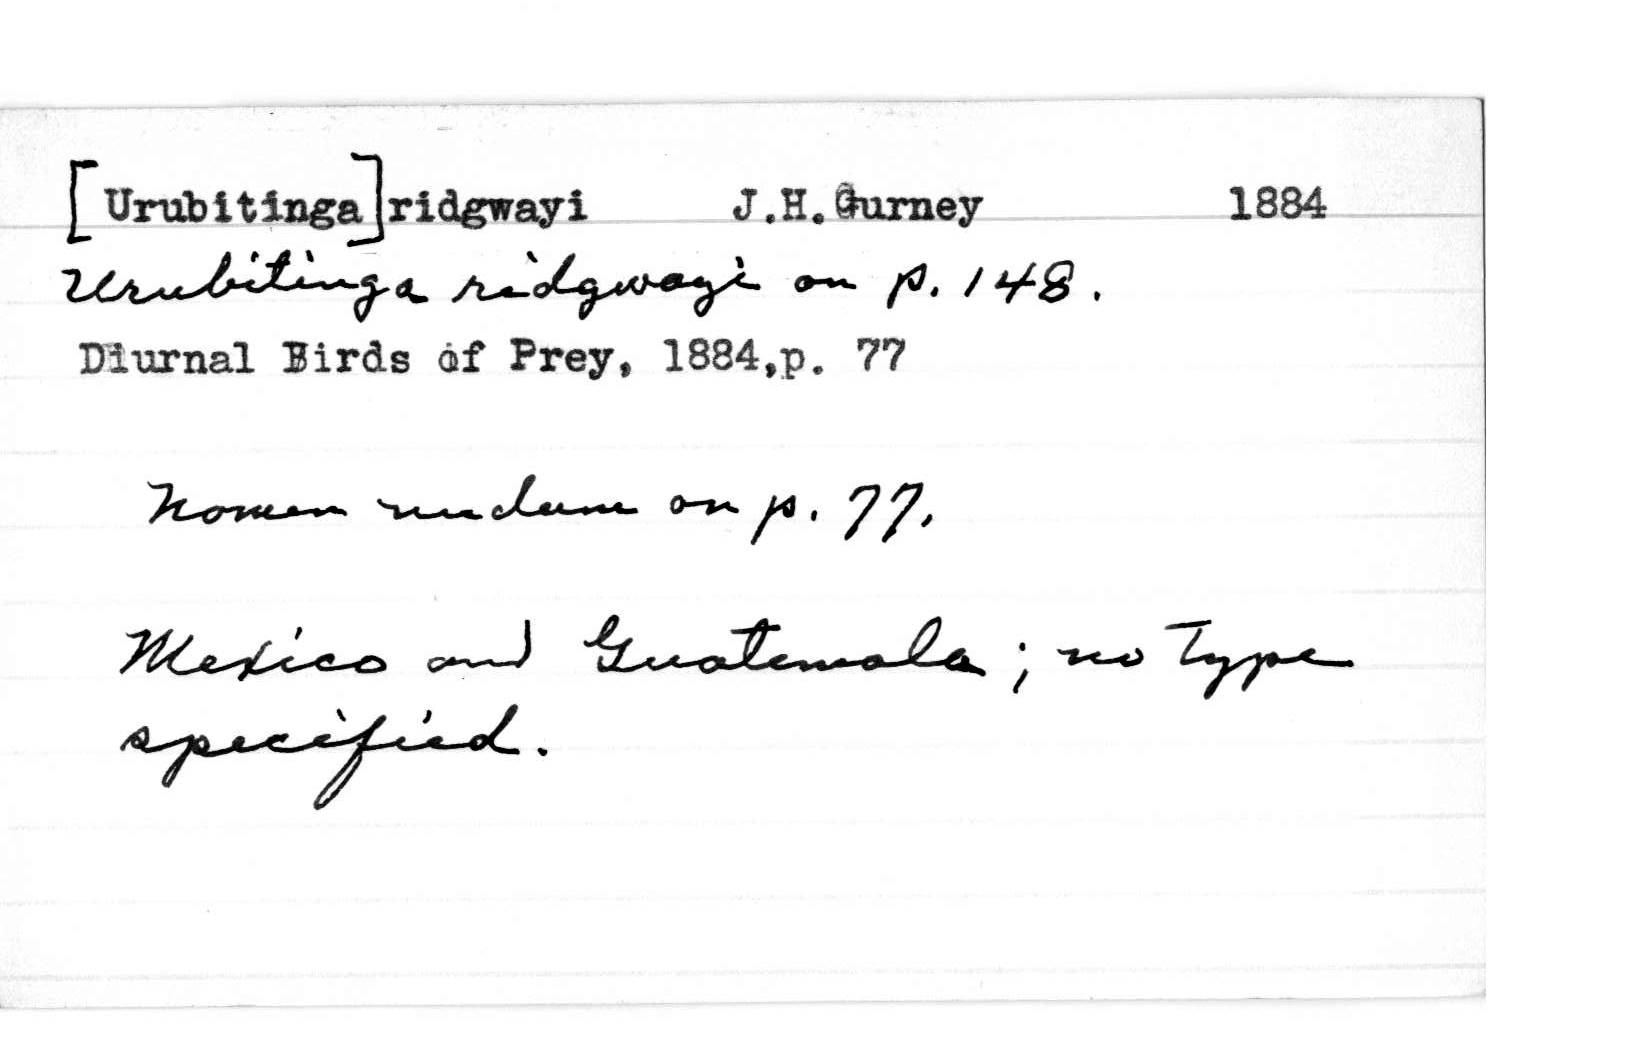 [Urubitinga]ridgwayi J.H.Gurney 1884
Urubitinga ridgwayi on p. 148.
Diurnal Birds of Prey, 1884,p. 77
Nomen nudum on p. 77.
Mexico and Guatemala ; no Type
specified.